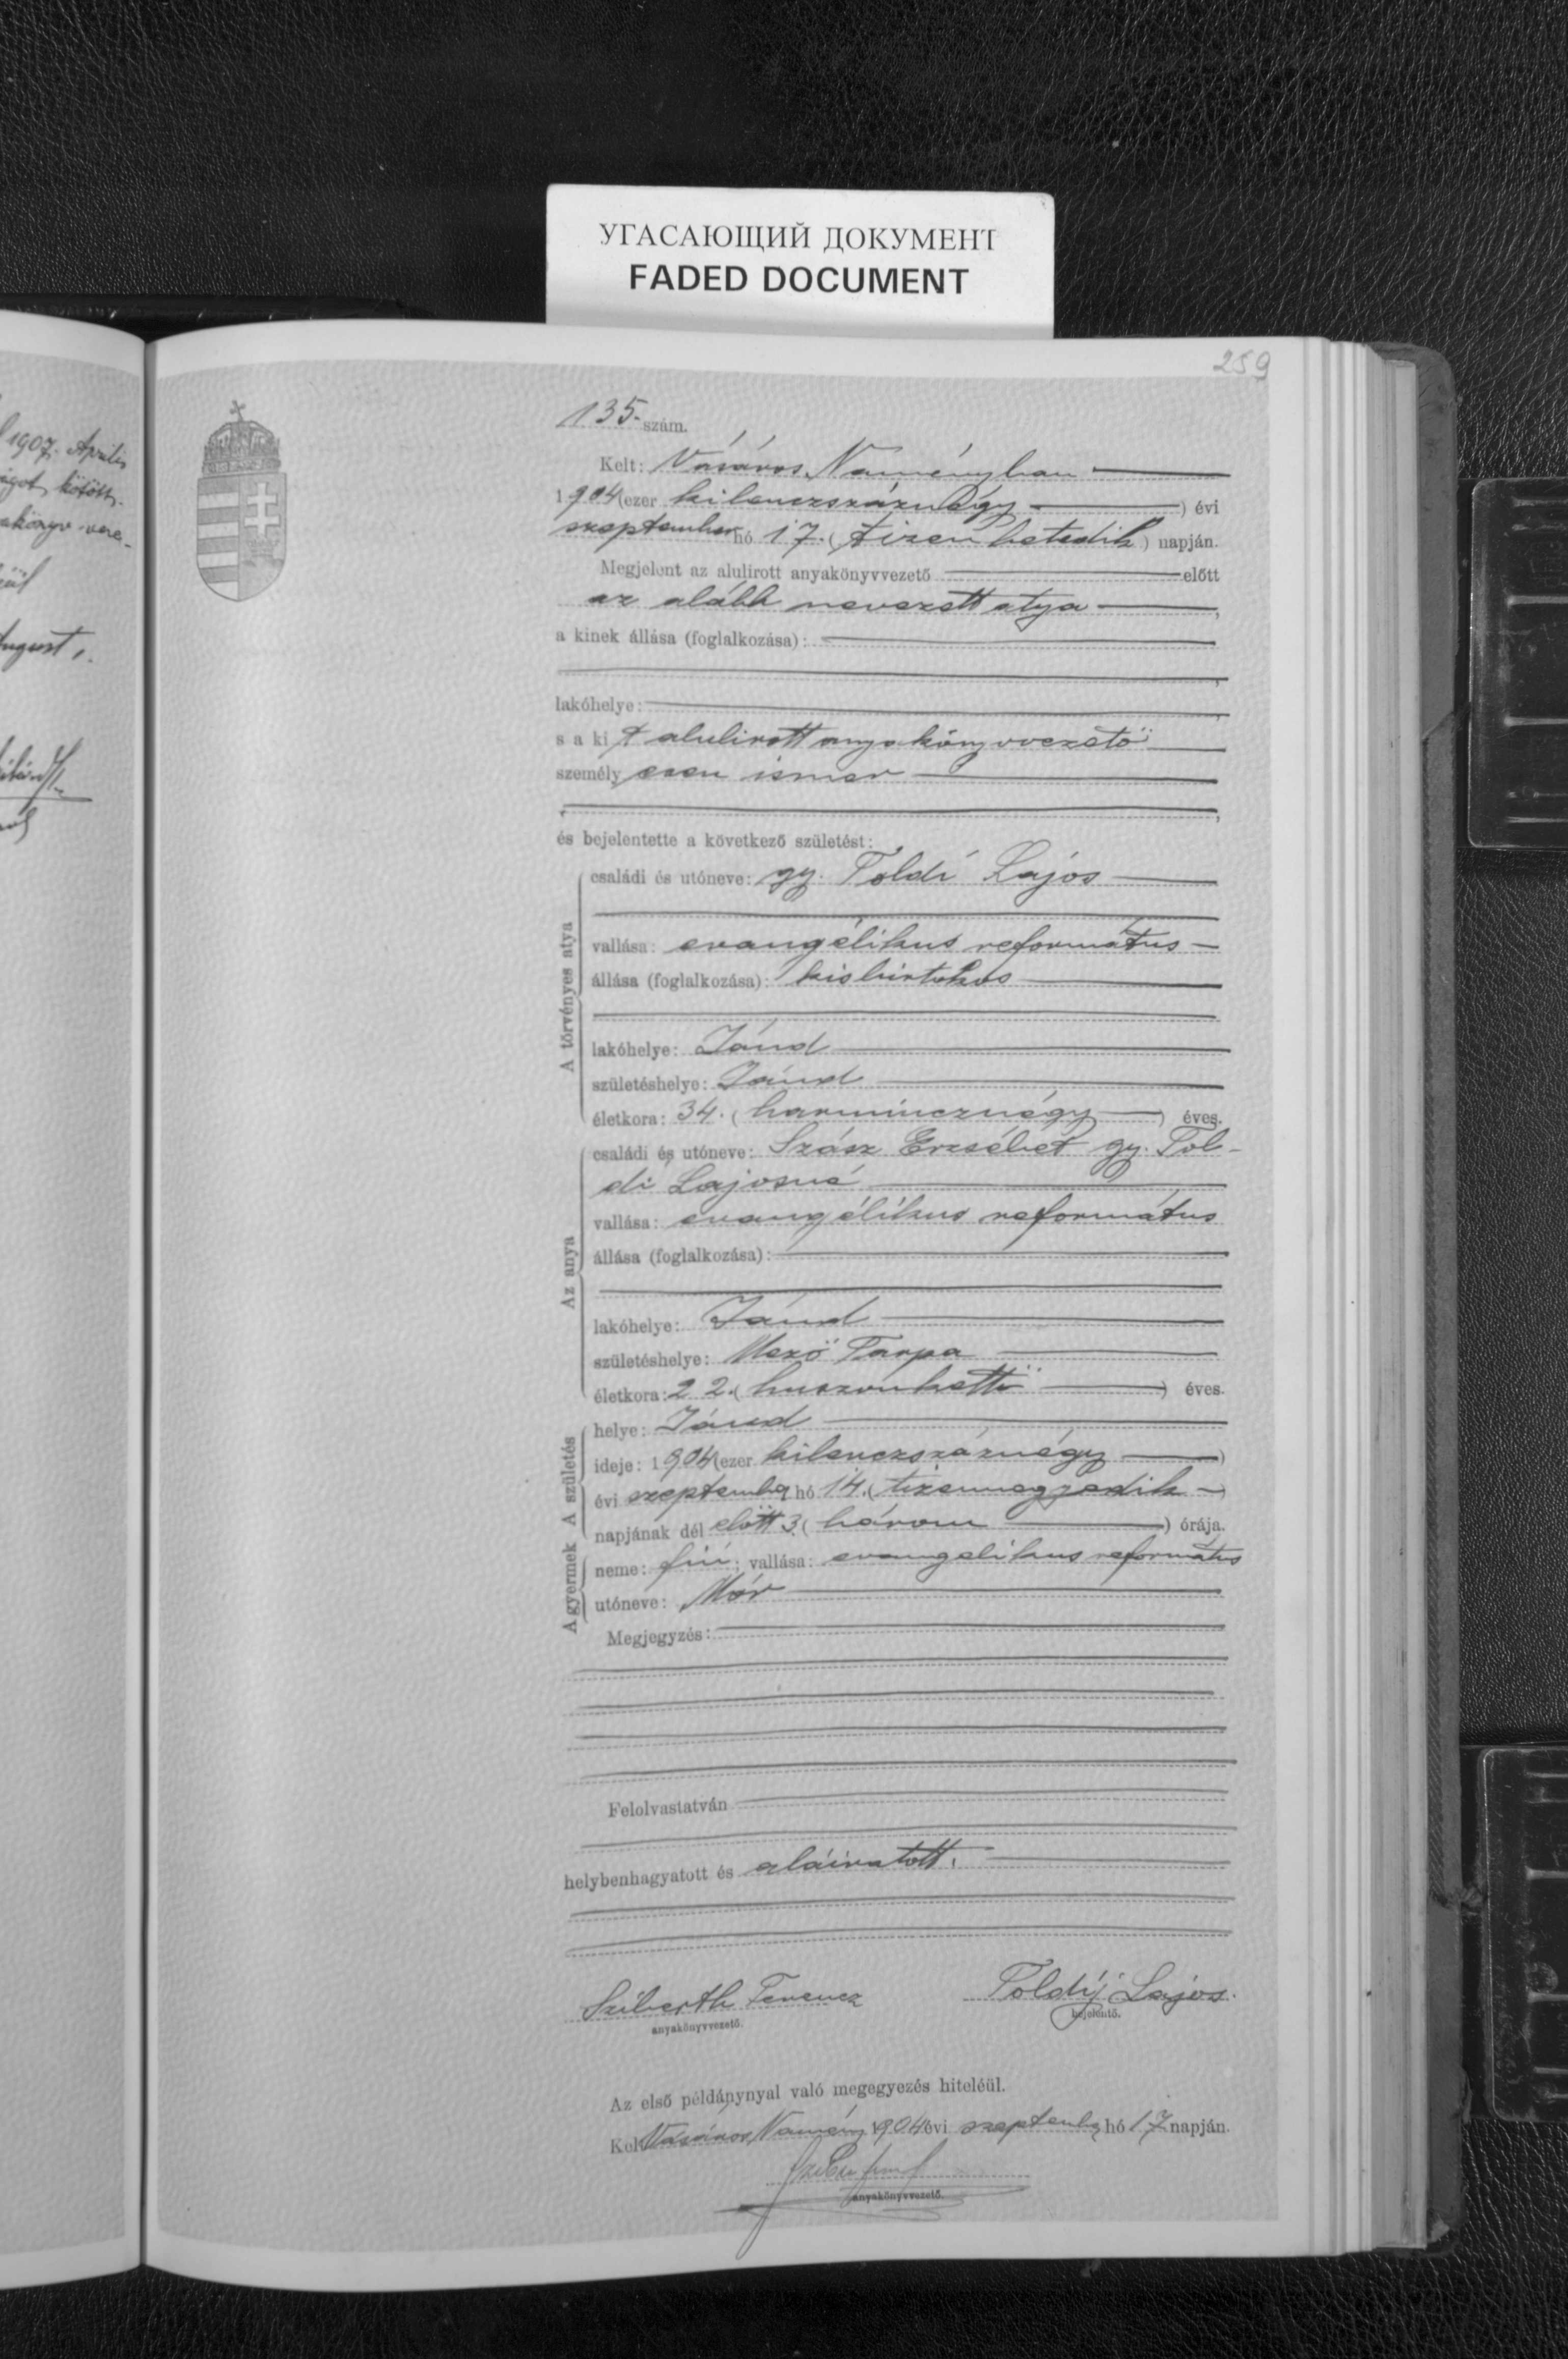 УГАСАЮЩИЙ ДОКУМЕНТ
FADED DOCUMENT
259
1907. Április
kötött.
135. szám.
Kelt: Vásáros Naményban
1904 (ezer kilenczszáznégy) évi
szeptember hó 17. (tizenhetedik) napján.
Megjelent az alulirott anyakönyvvezető előtt
az alább nevezett atya,
a kinek állása (foglalkozása):
lakóhelye:
s a kit alulirott anyakönyvvezető
személyesen ismer
és bejelentette a következő születést:
A törvényes atya
családi és utóneve: gy. Toldi Lajos
vallása: evangélikus református
állása (foglalkozása): kisbirtokos
lakóhelye: Jánd
születéshelye: Jánd
életkora: 34. (harmincznégy) éves.
Az anya
családi és utóneve: Szász Erzsébet gy. Tol-
di Lajosné
vallása: evangélikus református
állása (foglalkozása):
lakóhelye: Jánd
születéshelye: Mező Tarpa
életkora: 22. (huszonkettő) éves.
A születés
helye: Jánd
ideje: 1904 (ezer kilenczszáznégy)
évi szeptember hó 14. (tizennegyedik)
napjának dél előtt 3. (három) órája.
A gyermek
neme: fiú; vallása: evangelikus református
utóneve: Mór
Megjegyzés:
Felolvastatván
helybenhagyatott és aláiratott.
Sziberth Ferencz
Toldij Lajos.
anyakönyvvezető.
bejelentő.
Az első példánynyal való megegyezés hiteléül.
Kelt Vásáros Namény 1904 évi szeptember hó 17 napján.
anyakönyvvezető.